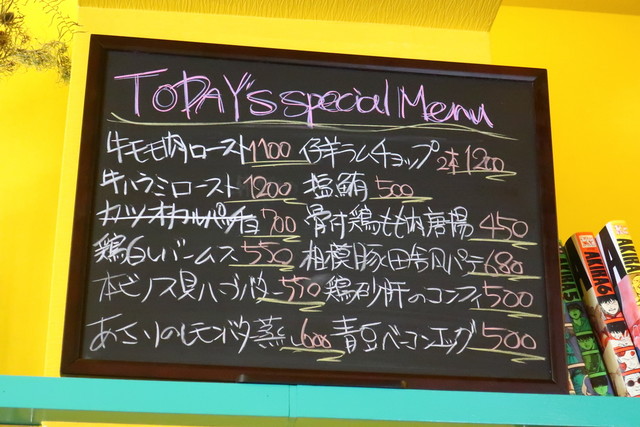 TODAY's special Menu
牛モモ肉ロースト 1100
牛ハラミロースト 1200
カツオカルパッチョ 700
鶏白レバームース 550
本ビノス貝ハーブバター 550
あさりのレモンバタ蒸し 600
仔羊ラムチョップ 2本 1200
塩鮪 500
骨付鶏もも肉唐揚 450
相模豚と田舎風パテ 680
鶏砂肝のコンフィ 500
青豆ベーコンエッグ 500
AKIRA 5
AKIRA 6